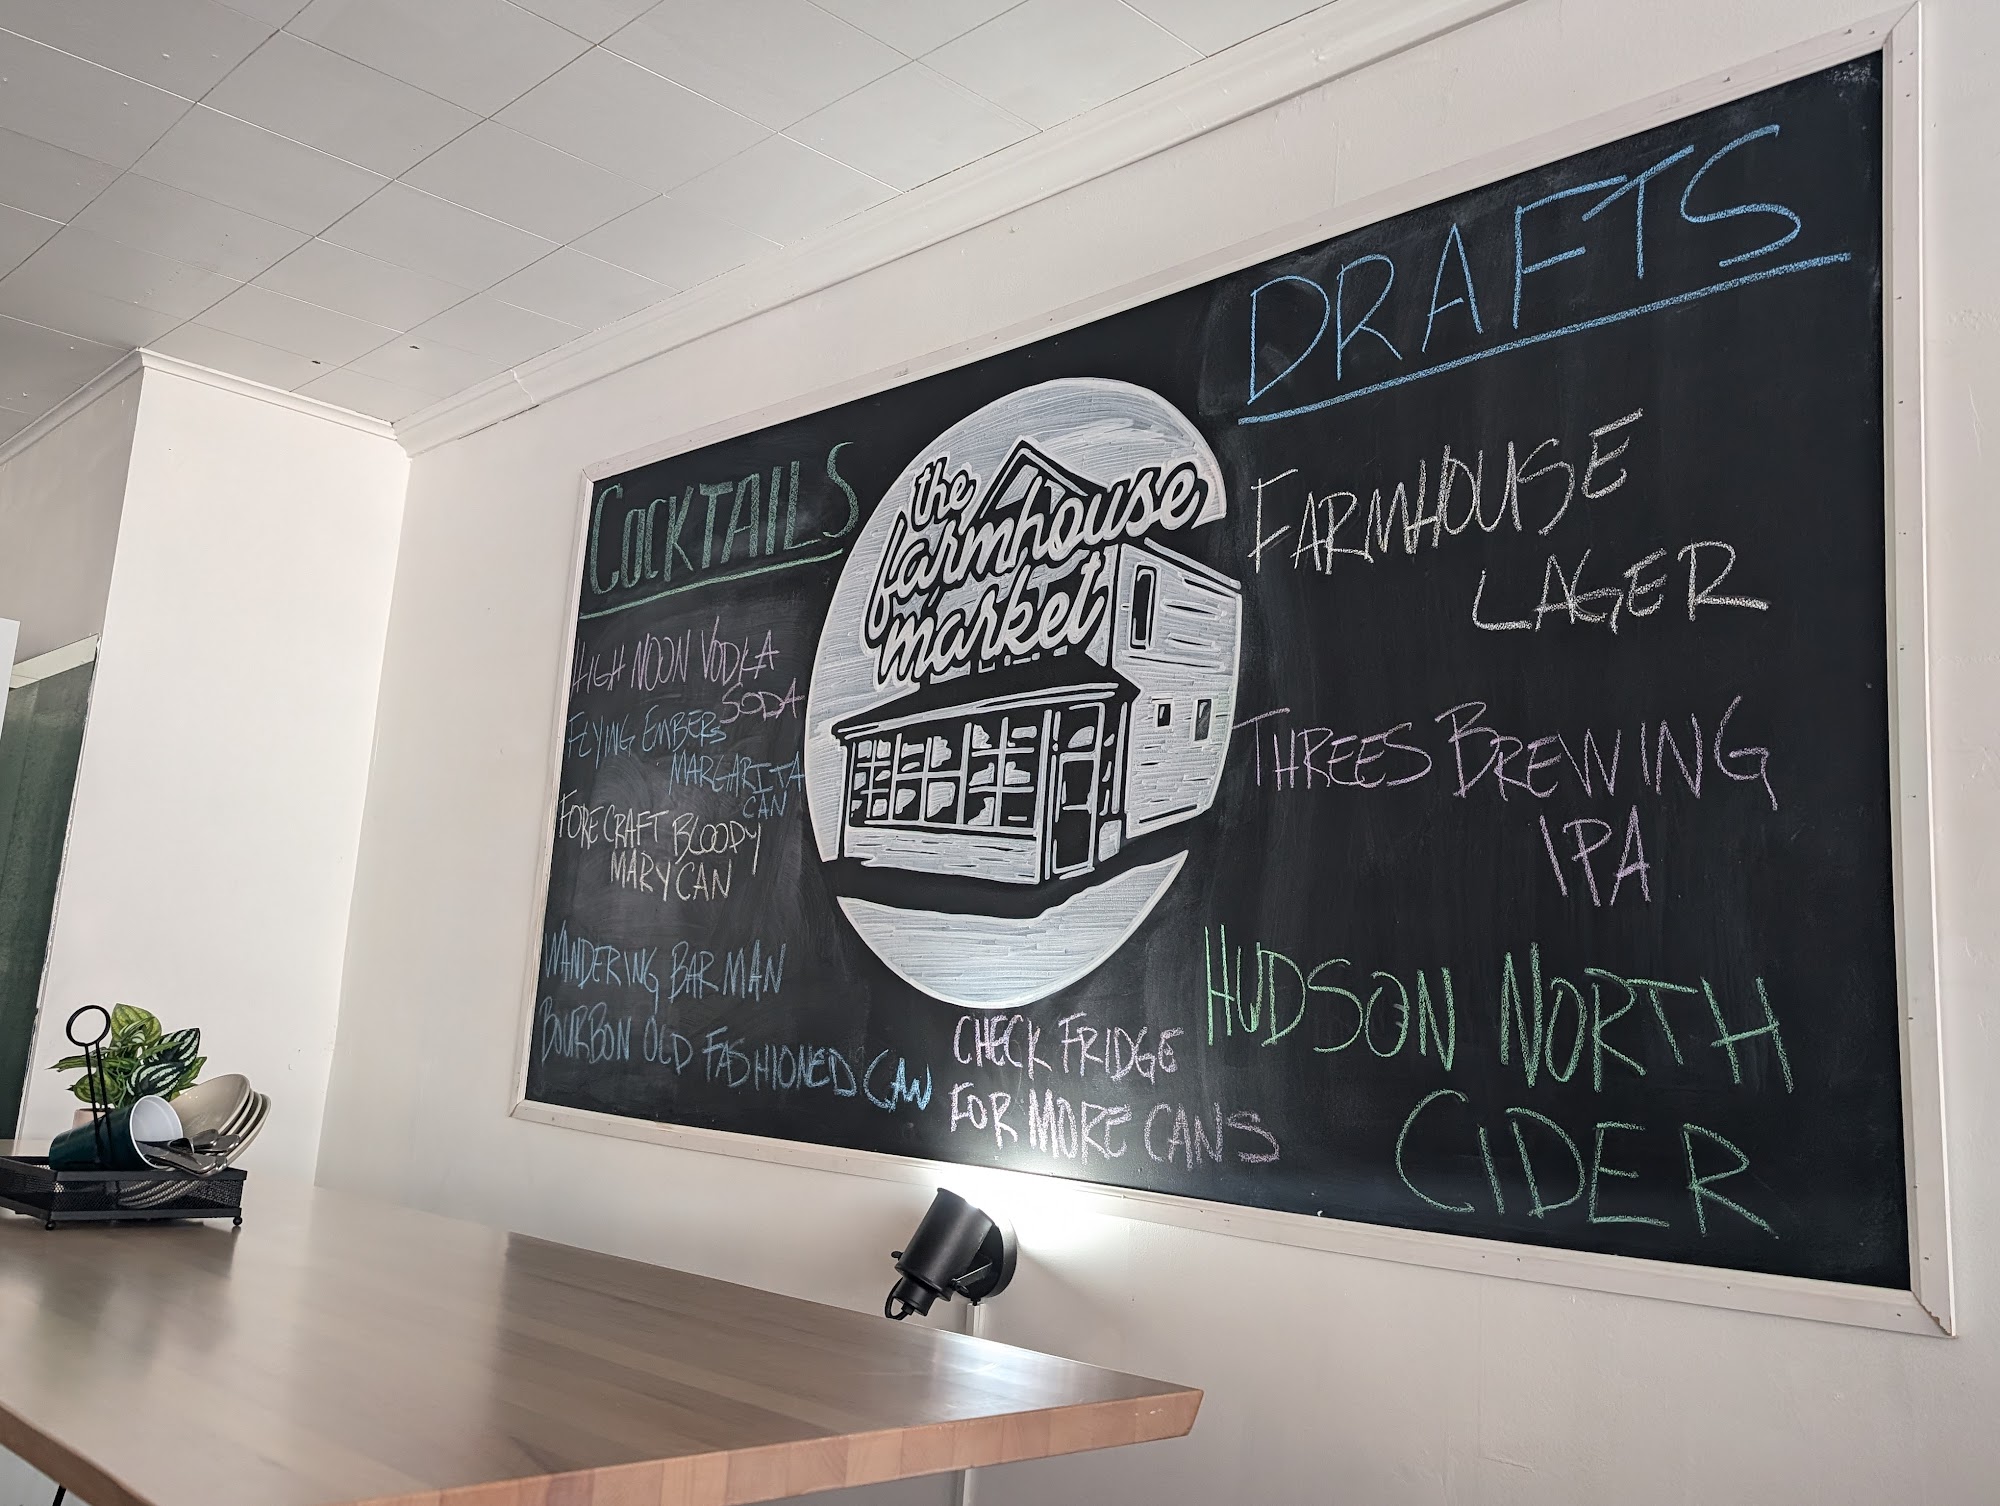 COCKTAILS
HIGH NOON VODKA
SODA
FLYING EMBERS
MARGARITA
CAN
FORECRAFT BLOODY
MARY CAN
WANDERING BARMAN
BOURBON OLD FASHIONED CAN
the
farmhouse
market
CHECK FRIDGE
FOR MORE CANS
DRAFTS
FARMHOUSE
LAGER
THREES BREWING
IPA
HUDSON NORTH
CIDER